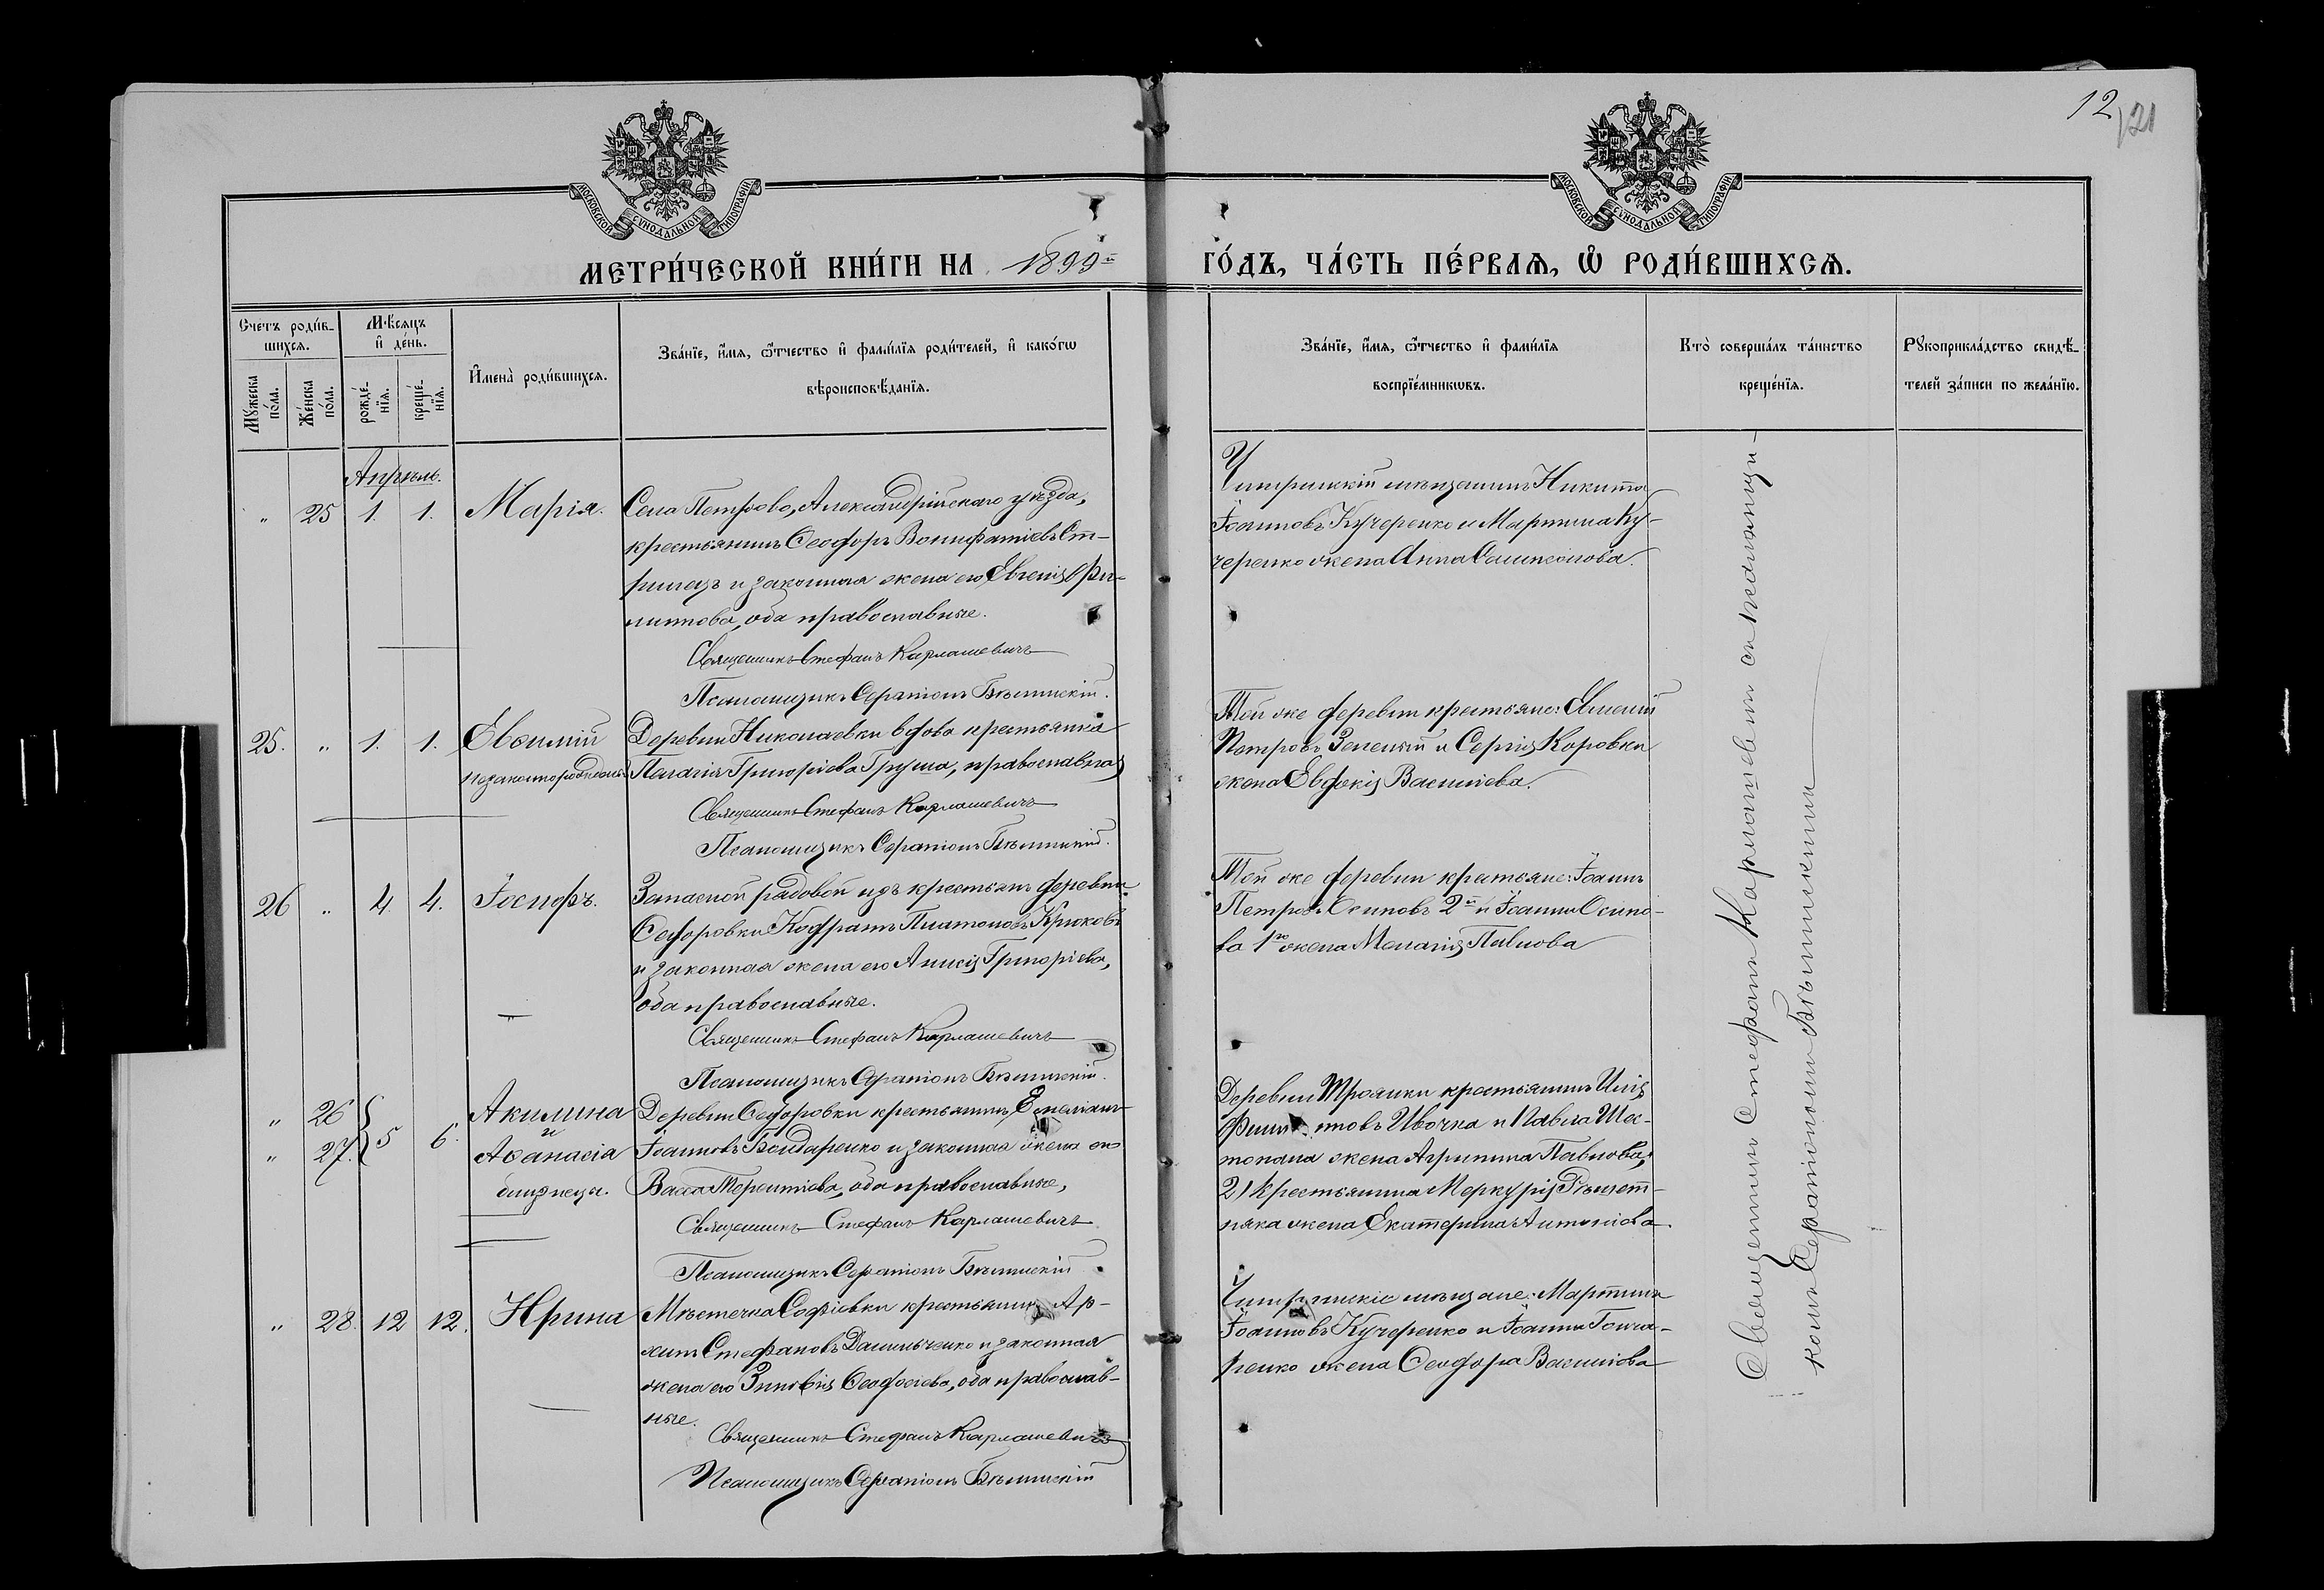 12
121
МОСКОВСКОЙ СѴНОДАЛЬНОЙ ТИПОГРАФІИ
МОСКОВСКОЙ СѴНОДАЛЬНОЙ ТИПОГРАФІИ
МЕТРИ́ЧЕСКОЙ КНИ́ГИ НА 1899й ГО́ДЪ, ЧА́СТЬ ПЕ́РВАѦ, Ѿ РОДИ́ВШИХСѦ.
Счетъ роди́в-
шихсѧ.
Мꙋ́жеска
по́ла.
Же́нска
по́ла.
Мѣ́сяцъ
и҆ де́нь.
рожде́-
нїѧ.
креще́-
нїѧ.
И҆мена̀ роди́вшихсѧ.
Зва́нїе, и҆́мѧ, ѻ҆́тчество и҆ фами́лїѧ роди́телей, и҆ како́гѡ
вѣроисповѣ́данїѧ.
Зва́нїе, и҆́мѧ, ѻ҆́тчество и҆ фами́лїѧ
воспрїе́мникѡвъ.
Кто̀ соверша́лъ та́инство
креще́нїѧ.
Рꙋкоприкла́дство свидѣ́-
телей за́писи по жела́нїю.
Апрѣль.
" 25 1. 1. Марія.
Села Петрово, Александрійскаго уѣзда,
крестьянинъ Ѳеодоръ Вонифатіевъ Ст-
и законная жена его Евгенія
оба православные.
Священникъ Стефанъ Карлашевичъ
Псаломщикъ Серапіонъ
мѣщанинъ Никита
Іоанновъ Кучеренко и Мартина Ку-
черенко жена Анна Самсонова.
25. " 1. 1. Евѳимій
незаконнорожден.
Деревни Николаевки вдова крестьянка
Пелагія Григоріева Груша, православная
Священникъ Стефанъ Карлашевичъ
Псаломщикъ Серапіонъ
Той же деревни крестьяне: Евмений
Петровъ Зеленый и Сергія Коровки
жена Евдокія Васильева.
26 " 4. 4. Іосифъ.
Запасной рядовой изъ крестьянъ деревни
Ѳедоровки Кодратъ Платоновъ Крюковъ
и законная жена его Анисія Григоріева,
оба православные.
Священникъ Стефанъ Карлашевичъ
Псаломщикъ Серапіонъ
Той же деревни крестьяне: Іоаннъ
Петровъ Осиповъ 2й и Іоанна Осипо-
ва 1го жена Меланія Павлова
" 26 } 5 6. Акилина
и
" 27. Аѳанасія
близнецы.
Деревни Ѳедоровки крестьянинъ Емеліанъ
Іоанновъ Бондаренко и законная жена его
Васса Терентіева, оба православные,
Священникъ Стефанъ Карлашевичъ
Псаломщикъ Серапіонъ
Деревни Троянки крестьянинъ Илія
Ивочка и Павла Шес-
топала жена Агрипина Павлова,
2) Крестьянина Меркурія Рѣшет-
няка жена Екатерина Антонова.
" 28. 12 12. Ирина
Мѣстечка Софіевки крестьянинъ Ар-
хипъ Стефановъ Данильченко и законная
жена его Зиновія Ѳеодосіева, оба православ-
ные.
Священникъ Стефанъ Карлашевичъ
Псаломщикъ Серапіонъ
мѣщане: Мартинъ
Іоанновъ Кучеренко и Іоанна Гонча-
ренко жена Ѳеодора Васильева
Священникъ Стефанъ Карлашевичъ съ псаломщи-
комъ Серапіономъ